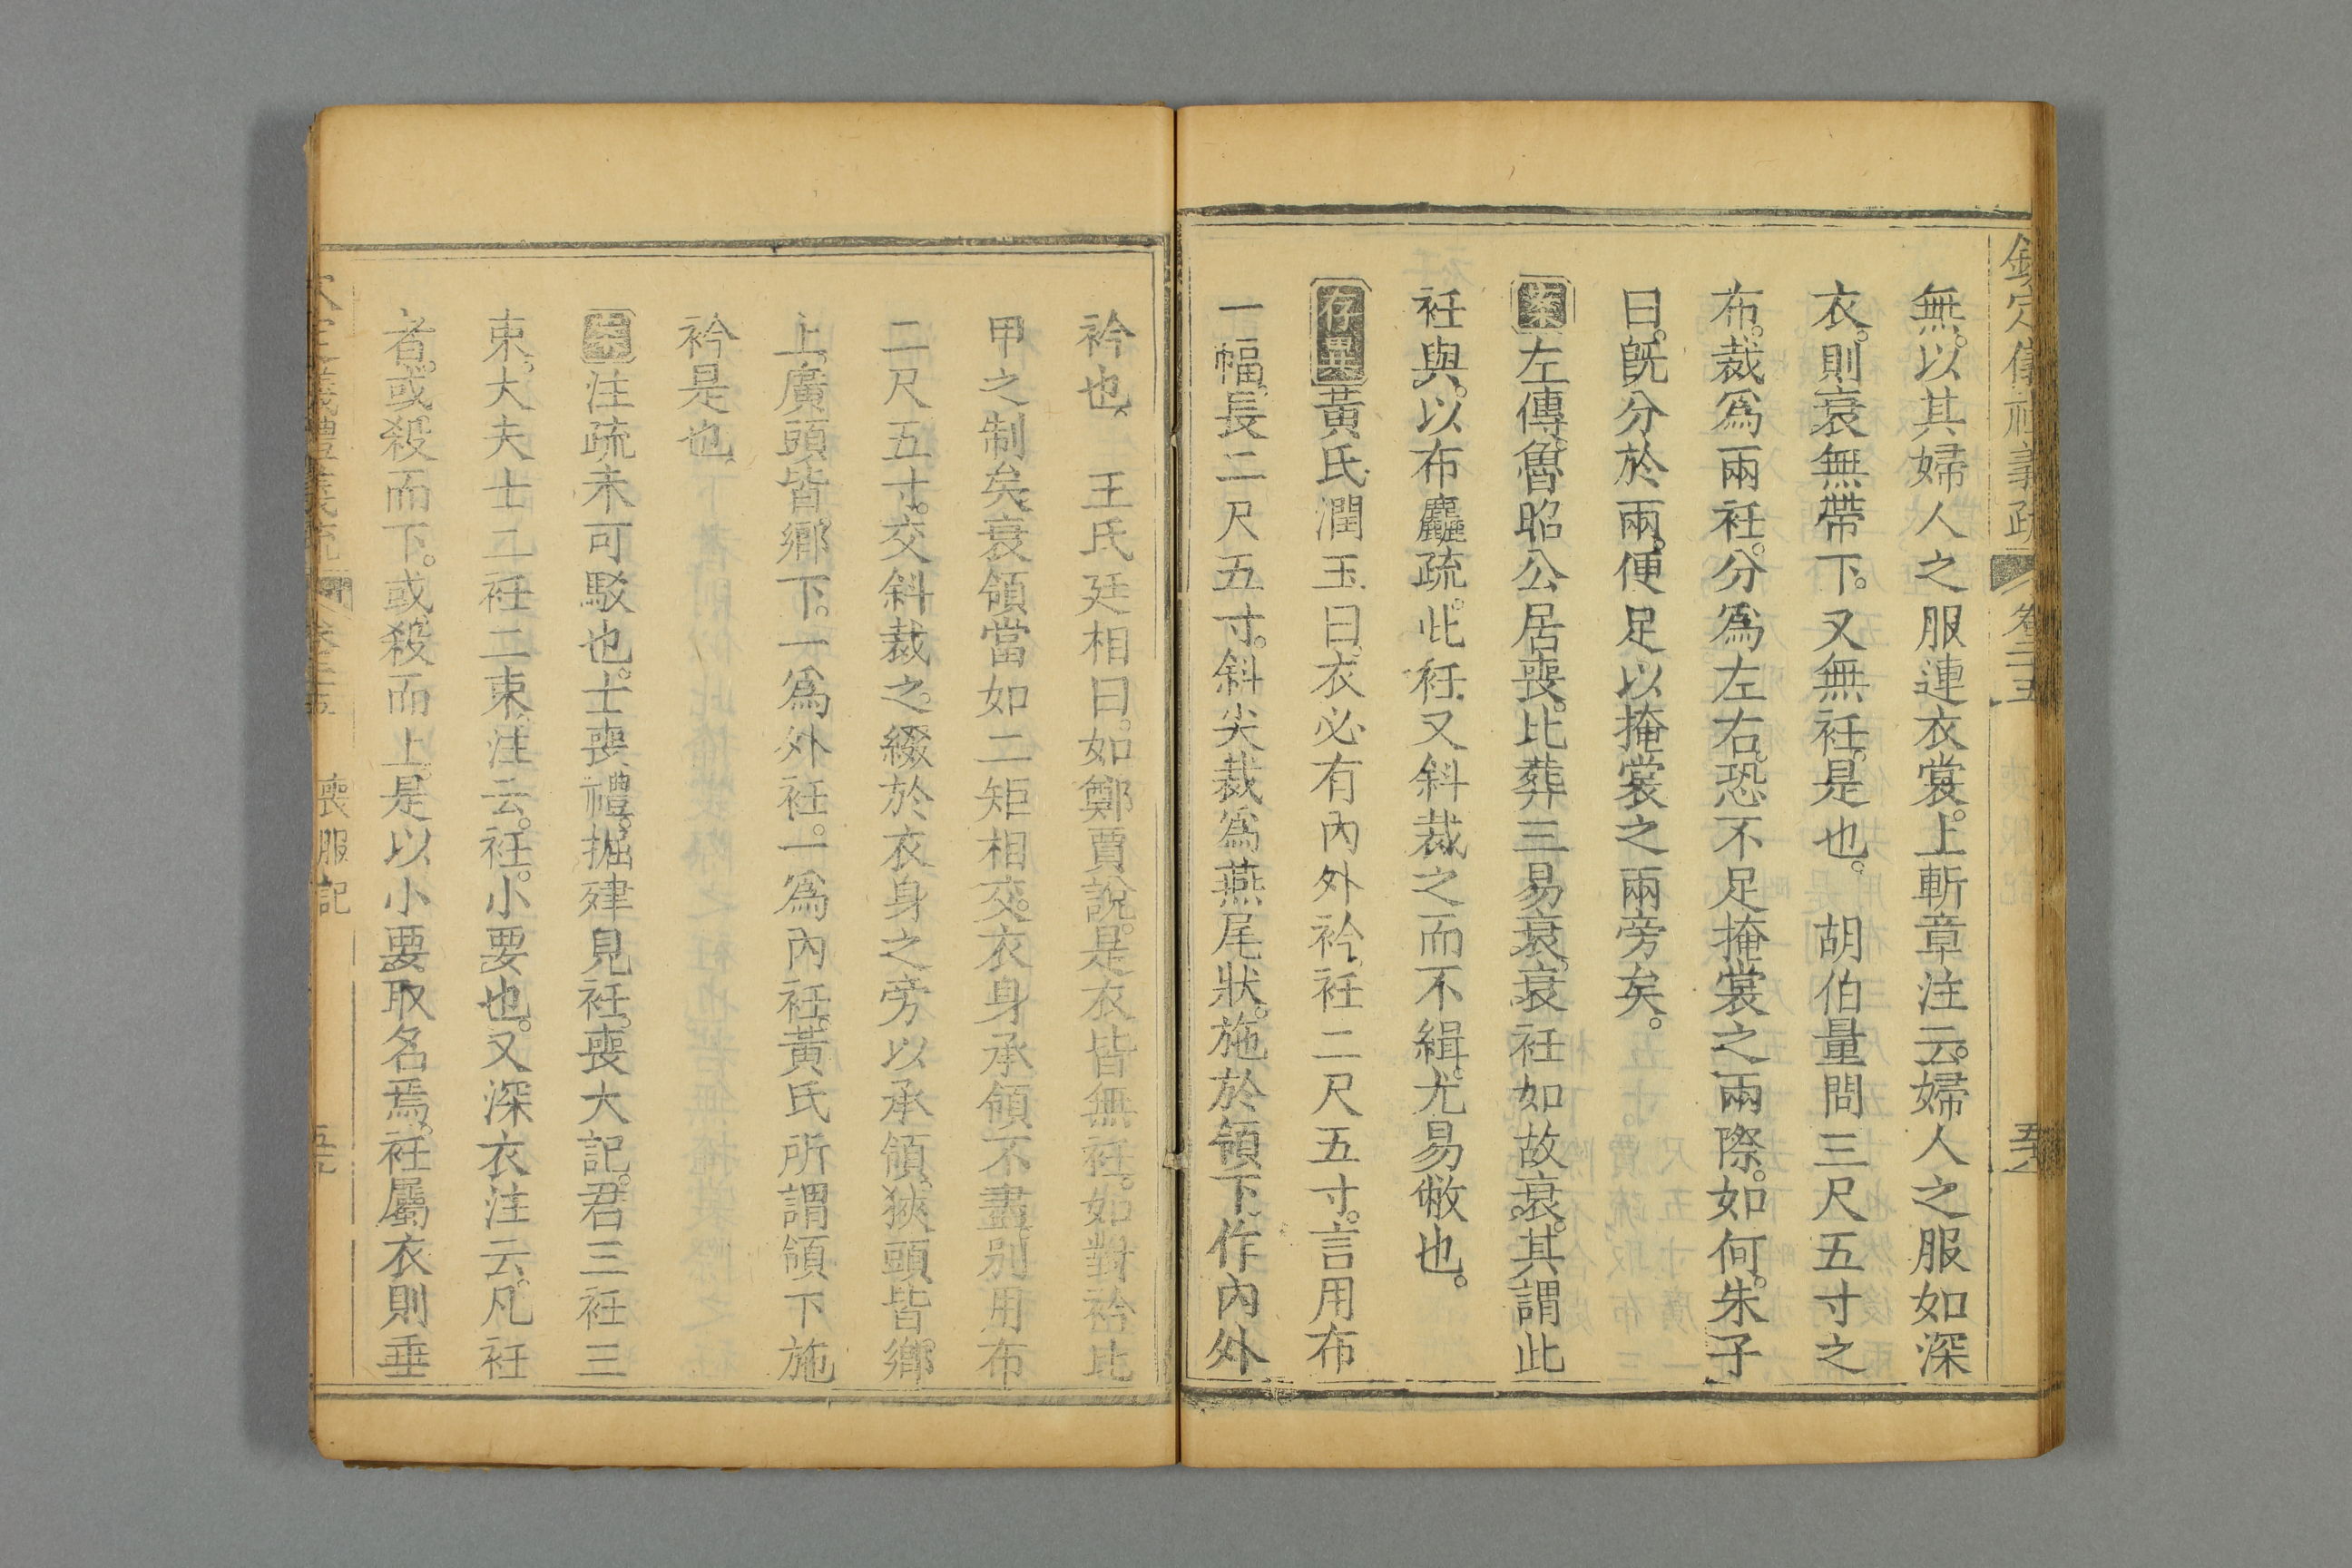 欽定儀禮義疏 卷二十五
無。以其婦人之服連衣裳。上斬章注云。婦人之服如深
衣。則衰無帶下。又無衽。是也。 胡伯量問三尺五寸之
布。裁爲兩衽。分爲左右。恐不足掩裳之兩際。如何。朱子
曰。旣分於兩。便足以掩裳之兩旁矣。
案左傳。魯昭公居喪。比葬三易衰。衰衽如故衰。其謂此
衽與。以布麤疏。此衽又斜裁之而不緝。尤易敝也。
存異黃氏潤玉曰。衣必有內外衿衽二尺五寸。言用布
一幅。長二尺五寸。斜尖裁爲燕尾狀。施於領下。作內外
衿也。 王氏廷相曰。如鄭賈說。是衣皆無衽。如對衿比
甲之制矣。衰領當如二矩相交。衣身承領不盡。別用布
二尺五寸。交斜裁之。綴於衣身之旁以承領。狹頭皆鄉
上。廣頭皆鄉下。一爲外衽。一爲內衽。黃氏所謂領下施
衿是也。
案注疏未可駁也。士喪禮。掘肂見衽。喪大記。君三衽三
束。大夫士二衽二束。注云。衽。小要也。又深衣注云。凡衽
者。或殺而下。或殺而上。是以小要取名焉。衽屬衣則垂
欽定儀禮義疏 卷二十五 喪服記